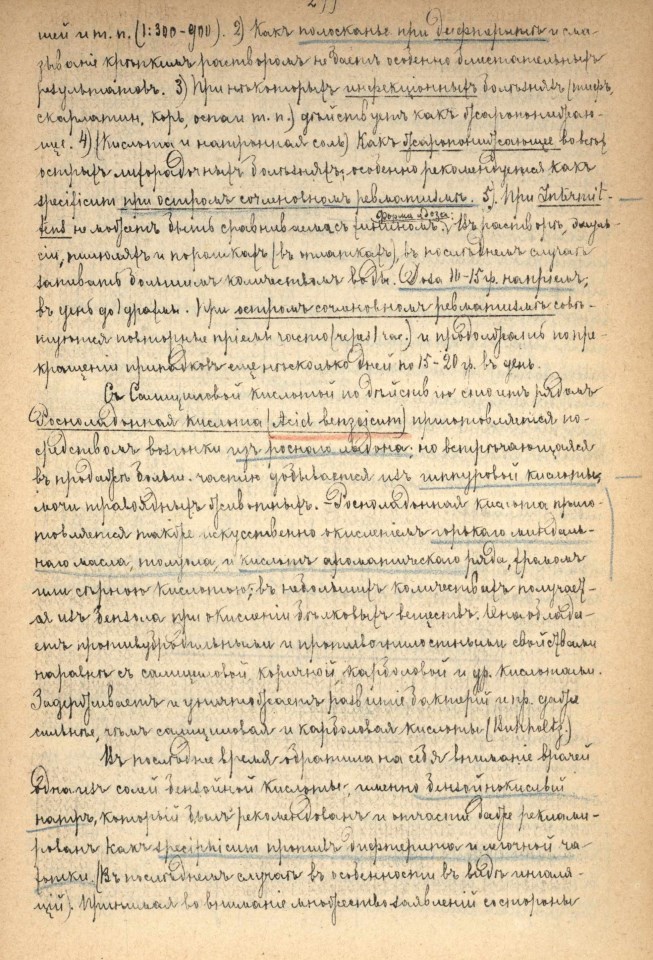 шей и т. п. (1:300-900). 2) Какъ полосканье при дифтеритѣ и сма-
зываніе крѣпкимъ растворомъ не даетъ особенно блистательныхъ
результатовъ. 3) При нѣкоторыхъ инфекціонныхъ болѣзняхъ (тифъ,
скарлатин, корь, оспа и т. п.) дѣйствуя какъ жаропонижаю-
щее. 4) (Кислота и натронная соль) Какъ жаропонижающее во всѣхъ
острыхъ лихорадочныхъ болѣзняхъ, особенно рекомендуется какъ
specificum при остромъ сочленовномъ ревматизмѣ. 5) При Intermit-
tens не можетъ быть сравниваемъ съ хининомъ. Форма и доза: Въ растворѣ, эмуль-
сіи, пилюляхъ и порошкахъ (въ облаткахъ), въ послѣднемъ случаѣ
запивать большимъ количествомъ воды. Доза 10-15 гр. на пріемъ,
въ день до 1 драхмы. При остромъ сочленовномъ ревматизмѣ совѣ-
туются повторные пріемы часто ( час.) и продолжать по пре-
кращеніи припадковъ еще нѣсколько дней по 15-20 гр. въ день.
Съ Салициловой кислотой по дѣйствію стоитъ рядомъ
Росноладонная кислота (Acid benzoicum) приготовляется по-
средствомъ возгонки изъ роснаго ладона; но встрѣчающаяся
въ продажѣ больш. частію добывается изъ гиппуровой кислоты,
мочи травоядныхъ животныхъ. Росноладонная кислота приго-
товляется также искусственно окисленіемъ горькаго миндаль-
наго масла, толуола, и кислотъ ароматическаго ряда, хромомъ
или сѣрною кислотою; въ небольшихъ количествахъ получает-
ся изъ бензола при окисленіи бѣлковыхъ веществъ. Она облада-
етъ противубродильными и противогнилостными свойствами
наравнѣ съ салициловой, коричной, карболовой и др. кислотами.
Задерживаетъ и уничтожаетъ развитіе бактерій и пр. даже
сильнѣе, чѣмъ салициловая и карболовая кислоты (Buchholtz.)
Въ послѣднее время обратила на себя вниманіе врачей
одна изъ солей бензойной кислоты, именно бензойнокислый
натръ, который былъ рекомендованъ и отчасти даже реклами-
рованъ какъ specificum противъ дифтерита и легочной ча-
хотки. (Въ послѣднемъ случаѣ въ особенности въ видѣ ингаля-
цій). Принимая во вниманіе множество заявленій со стороны